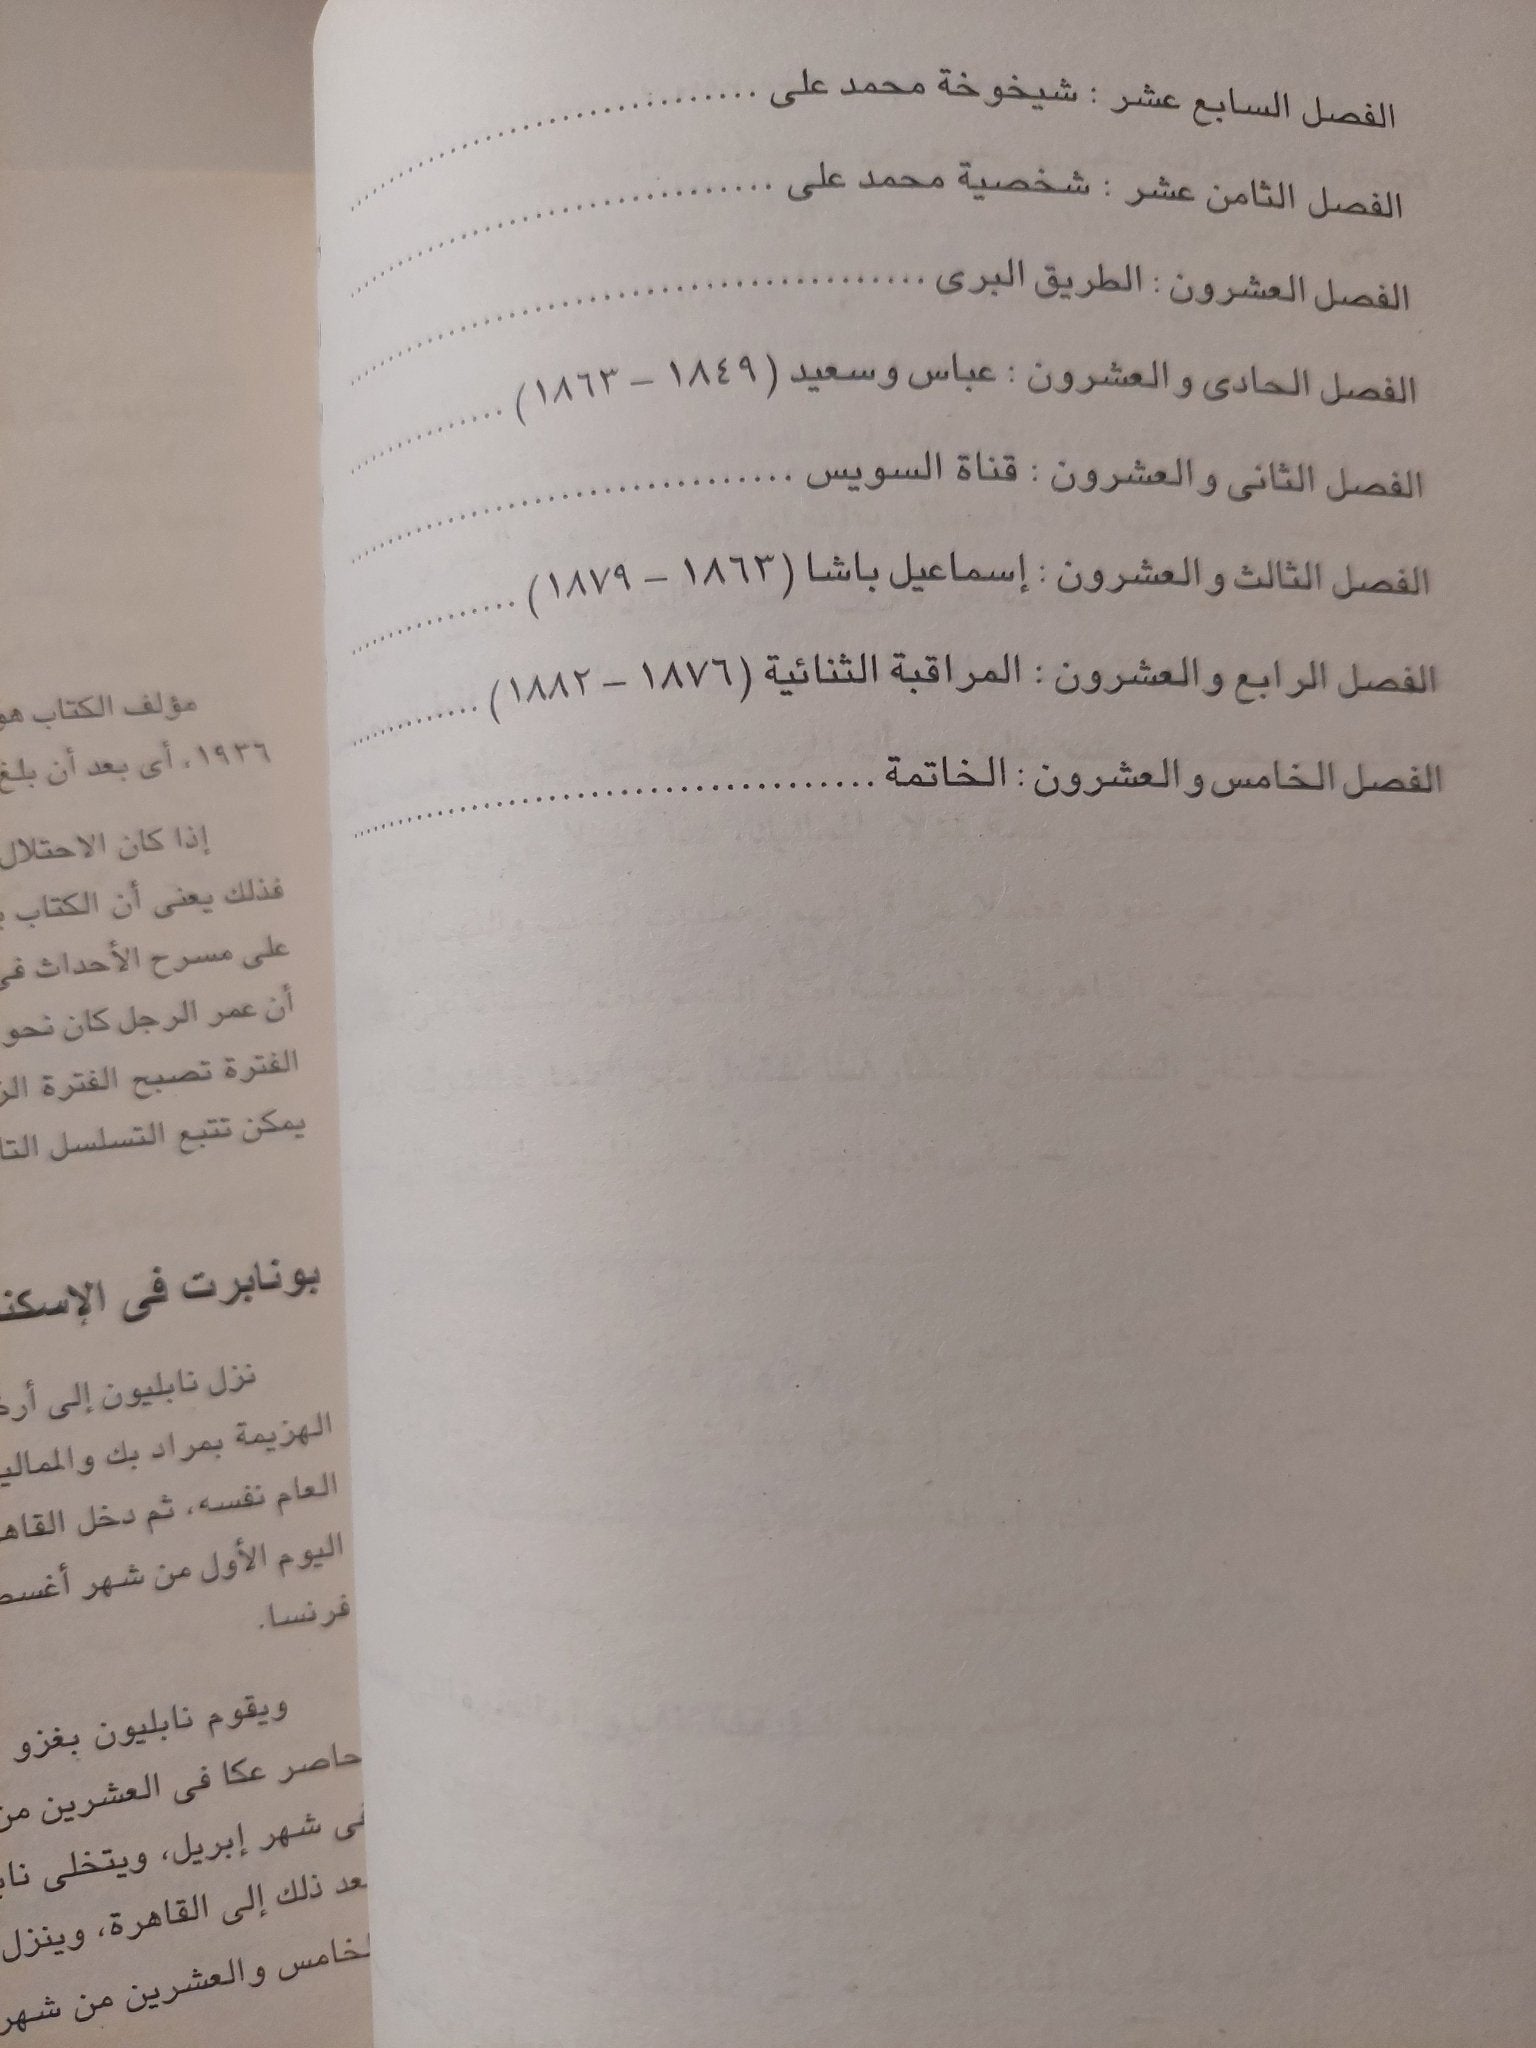 الفصل السابع عشر : شيخوخة محمد على ..............................
الفصل الثامن عشر : شخصية محمد على ..............................
الفصل العشرون : الطريق البرى ..............................
الفصل الحادى والعشرون : عباس وسعيد (١٨٤٩ – ١٨٦٣) ..............................
الفصل الثانى والعشرون : قناة السويس ..............................
الفصل الثالث والعشرون : إسماعيل باشا (١٨٦٣ – ١٨٧٩) ..............................
الفصل الرابع والعشرون : المراقبة الثنائية (١٨٧٦ – ١٨٨٢) ..............................
الفصل الخامس والعشرون : الخاتمة ..............................
مؤلف الكتاب هو
١٩٣٦، أى بعد أن بلغ
إذا كان الاحتلال
فذلك يعنى أن الكتاب
على مسرح الأحداث فى
أن عمر الرجل كان نحو
الفترة تصبح الفترة
يمكن تتبع التسلسل
بونابرت فى
نزل نابليون إلى
الهزيمة بمراد بك
العام نفسه، ثم دخل
اليوم الأول من شهر
فرنسا.
ويقوم نابليون بغزو
حاصر عكا فى العشرين من
فى شهر إبريل، ويتخلى
ذلك إلى القاهرة، وينزل
والعشرين من شهر